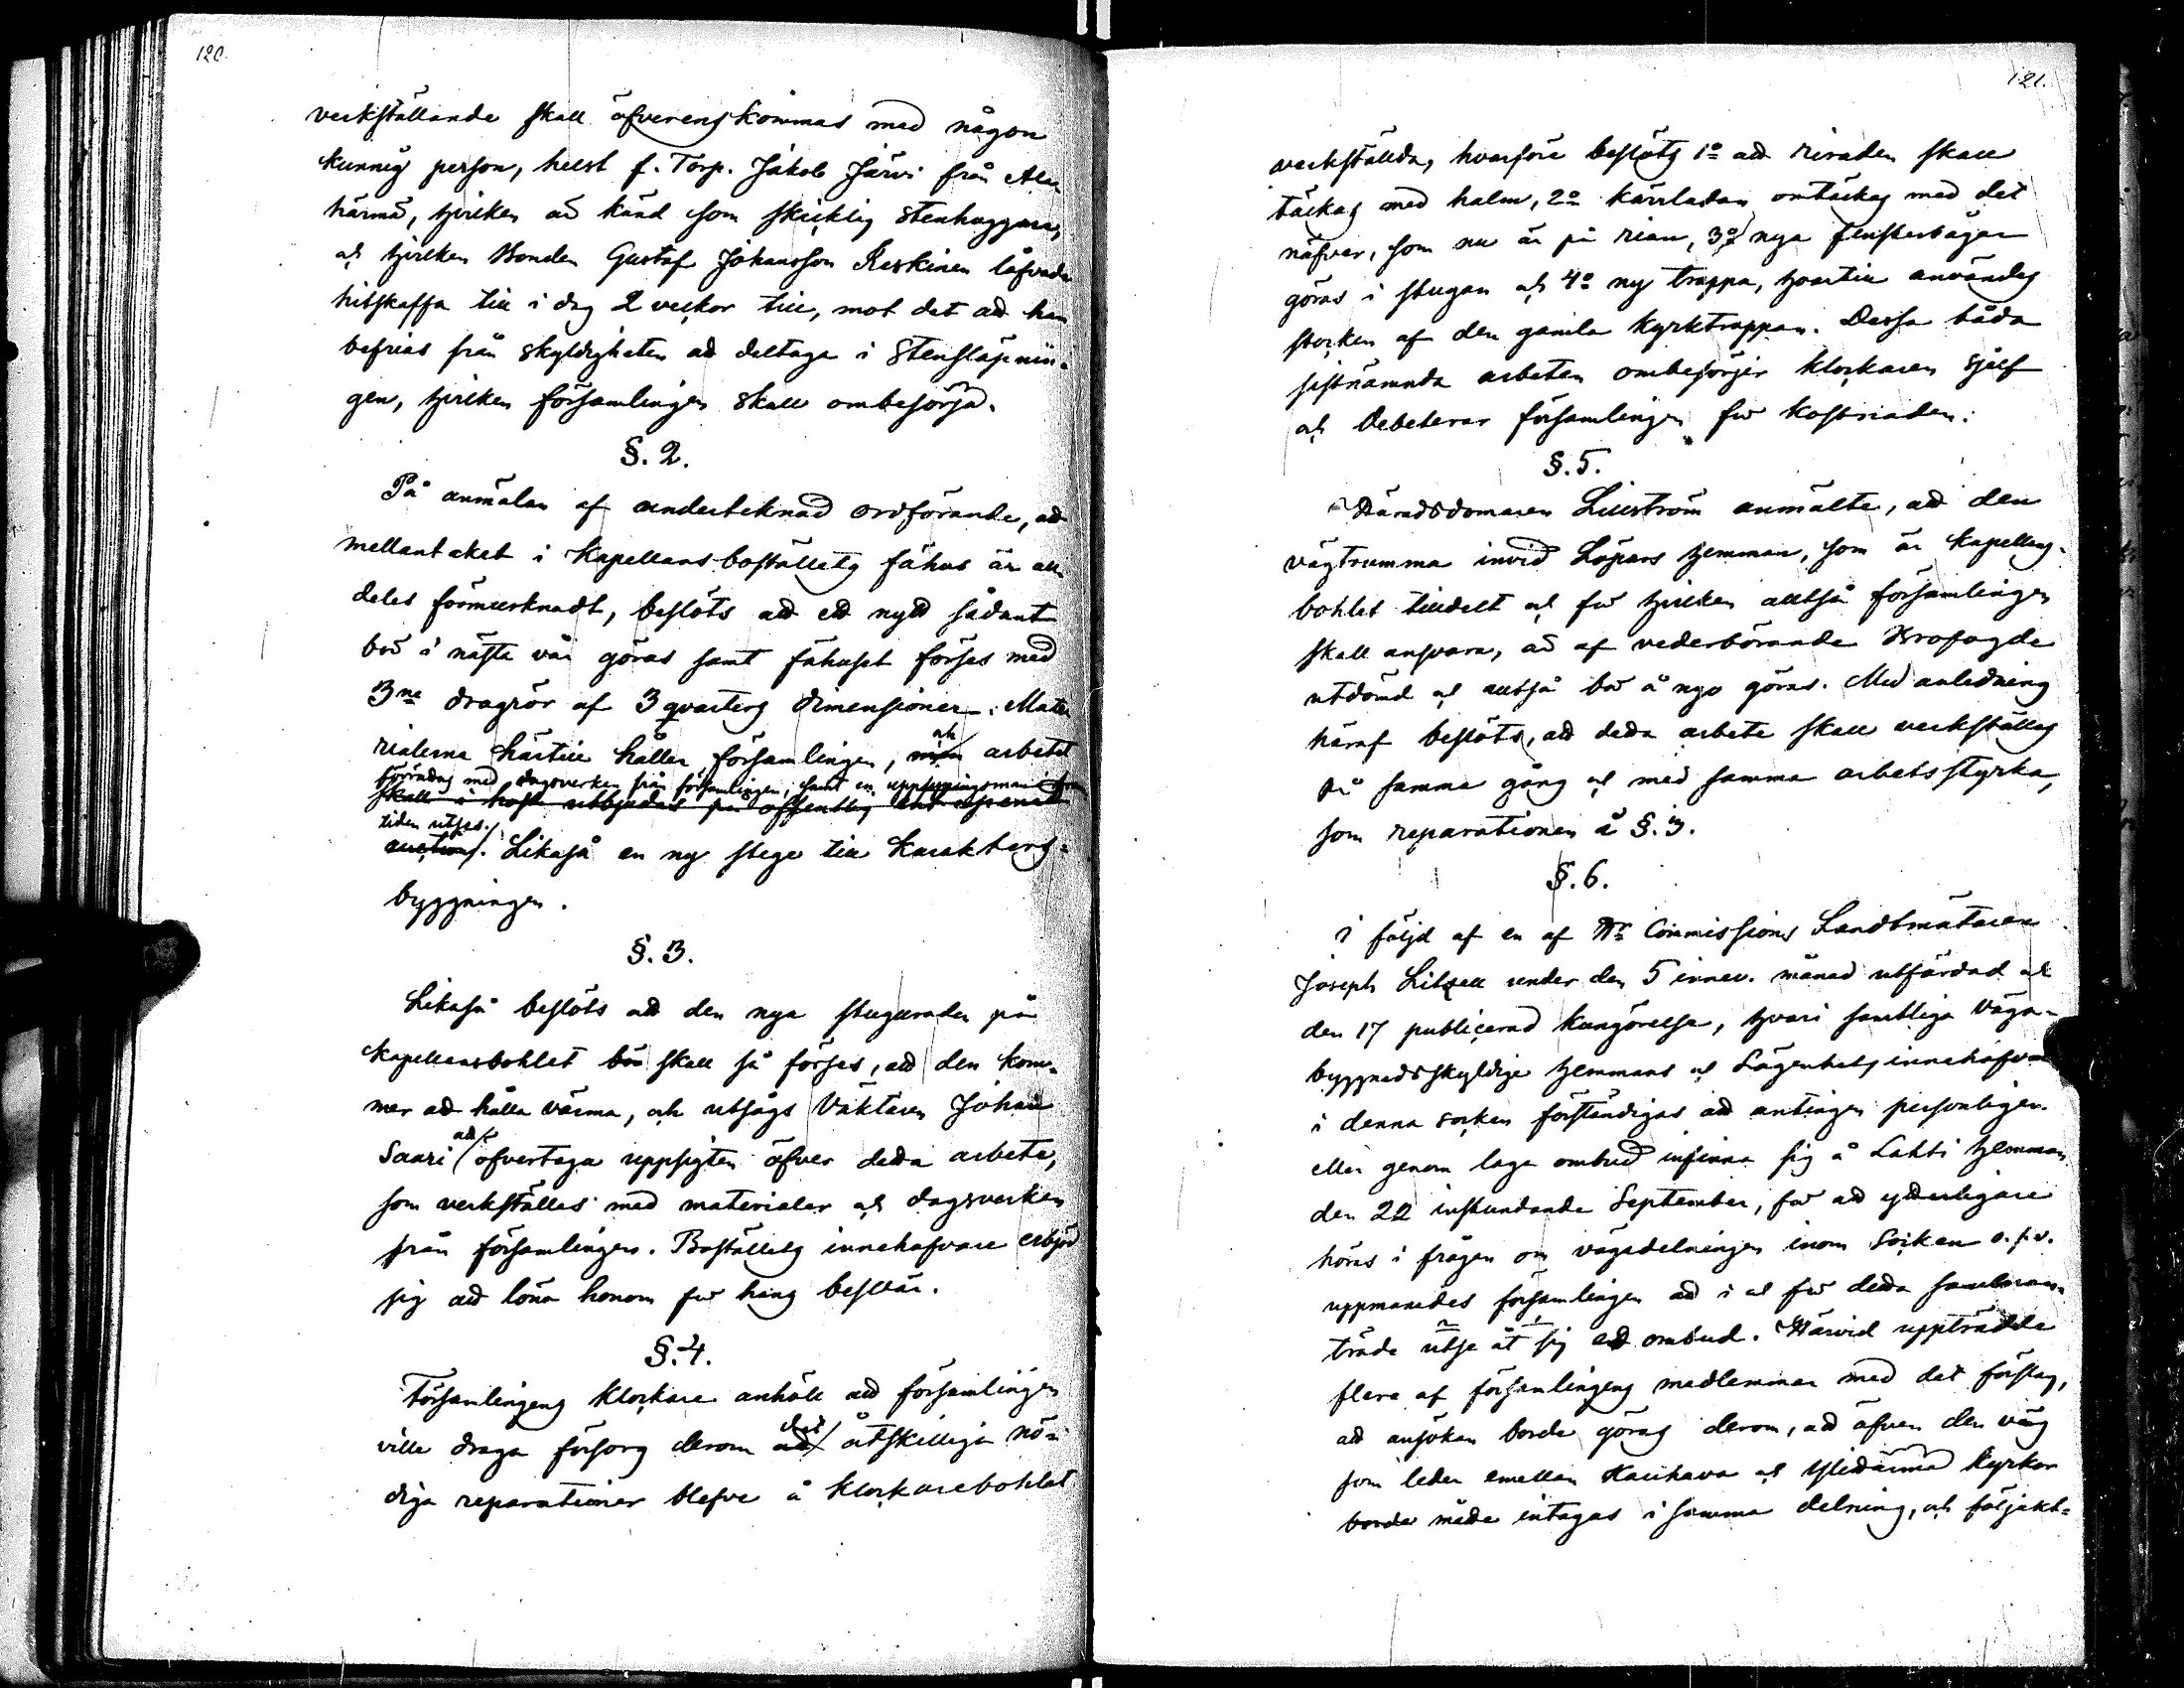 120.
verkställande skall öfverenskommas med någon
kunnig person, helst f. Torp. Jakob Järvi från Ala
härmä, hvilken är känd som skicklig stenhuggare,
och hvilken Bonden Gustaf Johansson Keskinen låfvade
hitskaffa till i dag 2 veckor till, mot det att han
befrias från skyldigheten att deltaga i stensläpnin-
gen, hvilken församlingen skall ombesörja.
§. 2.
På anmälan af undertecknad ordförande, att
mellantaket i Kapellansboställets fähus är all-
deles förmurknadt, beslöts att ett nytt sådant
bör i nästa vår göras samt fähuset förses med
3ne dragrör af 3 qvarters dimensioner. Mate
rialerna härtill håller församlingen, men och arbetet
förrättas med dagsverken från församlingen, samt en uppsyningsman fram
skall i höst utbjudas på offentlig entreprenad
tiden utses.
auction. Likaså en ny stege till Karakters-
byggningen.
§. 3.
Likaså beslöts att den nya stuguraden på
Kapellansbohlet bör skall så förses, att den kom-
mer att hålla värma, och utsågs Väktaren Johan
Saari att öfvertaga uppsigten öfver detta arbete,
som verkställes med materialer och dagsverken
från församlingen. Boställets innehafvare erbjöd
sig att löna honom för hans besvär.
§. 4.
Församlingens klockare anhöll att församlingen
ville draga försorg derom att det åtskilliga nö-
diga reparationer blefve å klockarebohlet
121.
verkställda, hvarföre beslöts 1o att riraden skall
täckas med halm, 2o kärrladan omtäckas med det
näfver, som nu är på rian, 3o nya fensterbågar
göras i stugan och 4o ny trappa, hvartill användes
stocken af den gamla kyrktrappan. Dessa båda
sistnämnda arbeten ombesörjer klockaren sjelf
och debeterar församlingen för kostnaden.
§. 5.
Häradsdomaren Lillström anmälte, att den
vägtrumma invid Löpars hemman, som är Kapellans-
bohlet tilldelt och för hvilken alltså församlingen
skall ansvara, är af vederbörande Brofogde
utdömd och alltså bör å nyo göras. Med anledning
häraf beslöts, att detta arbete skall verkställas
på samma gång och med samma arbetsstyrka,
som reparationen å §. 3.
§. 6.
I följd af en af Hr Commissions Landtmätaren
Joseph Litzell under den 5 innev. månad utfärdad och
den 17 publicerad kungörelse, hvari samtliga väga-
byggnadsskyldige hemmans och Lägenhets innehafvare
i denna socken förständigas att antingen personligen
eller genom laga ombud infinna sig å Lahti hemman
den 22 instundande September, för att ytterligare
höras i frågan om vägadelningen inom Socken o. s. v.
uppmanades församlingen att i och för detta samman-
träde utse åt sig ett ombud. Härvid uppträdde
flera af församlingens medlemmar med det förslag,
att ansökan borde göras derom, att äfven den väg
som leder emellan Kauhava och Ylihärmä Kyrkor
borde måtte intagas i samma delning, och följakt-